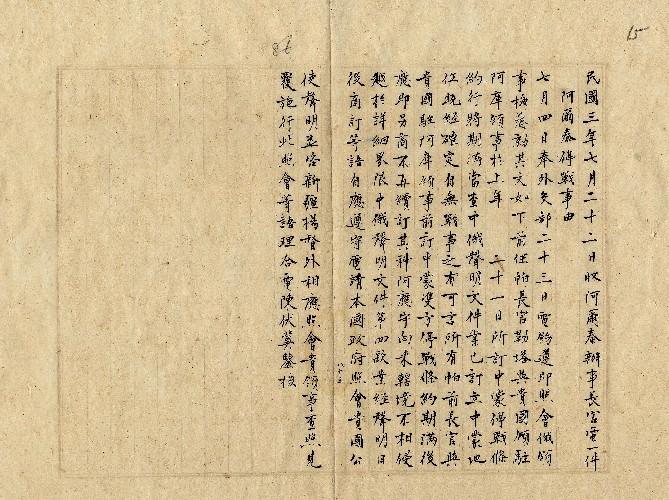 民國三年七月二十二日收阿爾泰辦事長官電一件
阿爾泰停戰事由
七月四日奉外交部二十三日電飭遵即照會俄領
事按茲錄其文如下前任帕長官勒塔與貴國領駐
阿庫領事於上年 二十一日所訂中蒙停戰條
約行將期滿當查中俄聲明文件業已訂立中蒙地
位既經確定自無戰事之有可言所有帕前長官與
貴國駐阿庫領事前訂中蒙雙方停戰條約期滿後
應即另商不再續訂其科阿應守向來轄境不相侵
越於詳細界限中俄聲明文件第四款業經聲明日
後商訂等語自應遵守電請本國政府照會貴國公
使聲明並容新疆楊督外相應照會貴領事查照見
覆施行此照會等語理合電陳伏冀鑒核
78
15